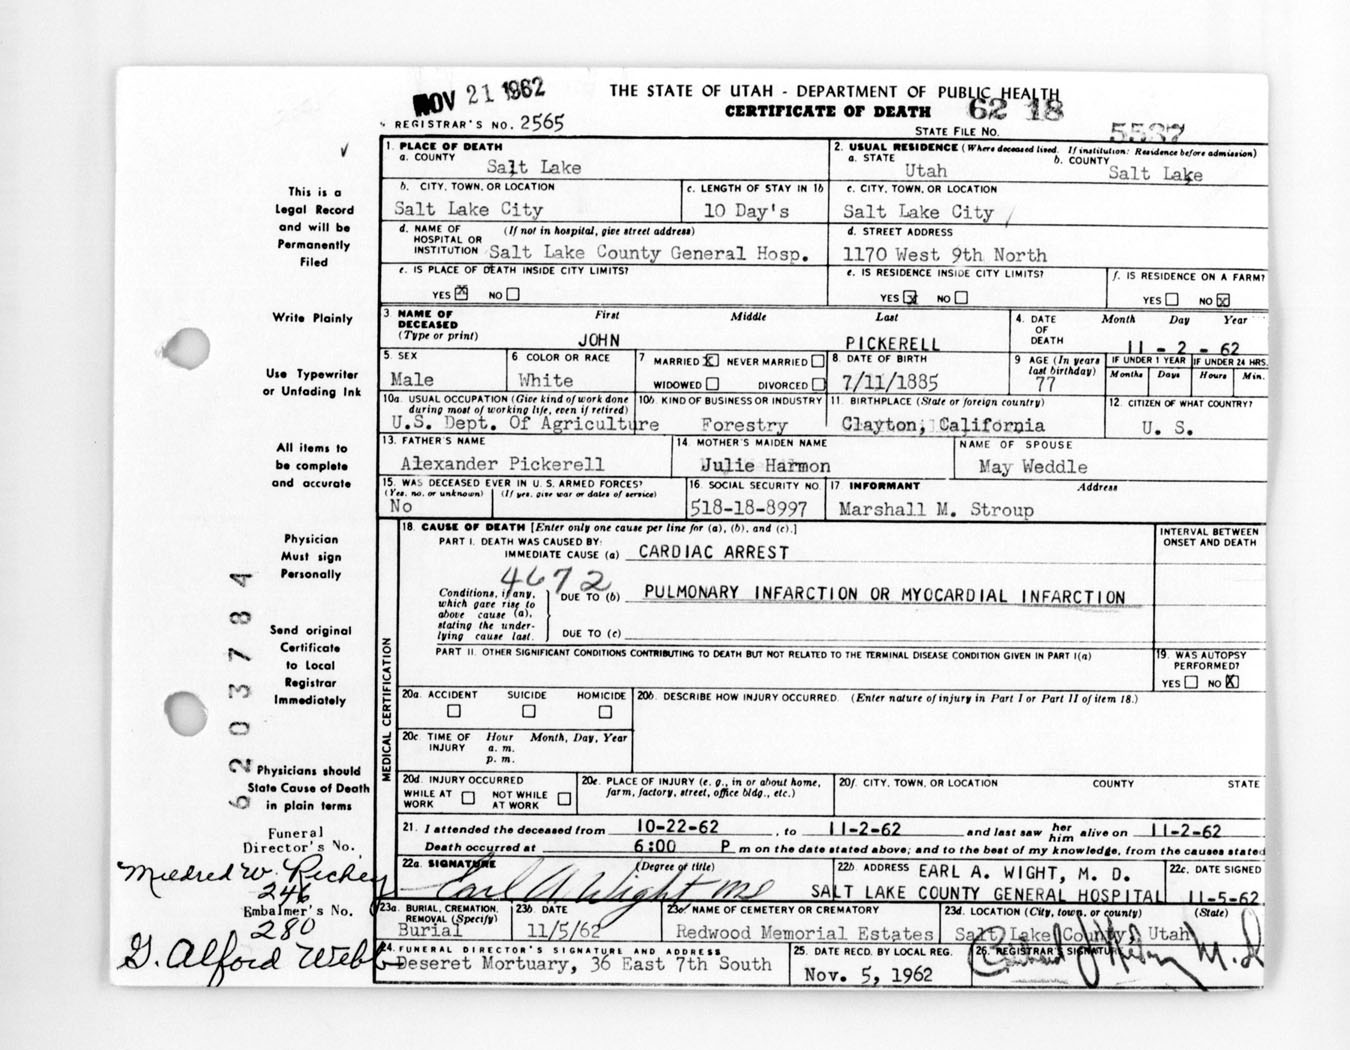 NOV 21 1962
THE STATE OF UTAH - DEPARTMENT OF PUBLIC HEALTH
CERTIFICATE OF DEATH 62 18
REGISTRAR'S NO. 2565
STATE FILE NO. 5537
This is a
Legal Record
and will be
Permanently
Filed
Write Plainly
Use Typewriter
or Unfading Ink
All items to
be complete
and accurate
Physician
Must sign
Personally
Send original
Certificate
to Local
Registrar
Immediately
Physicians should
State Cause of Death
in plain terms
62 0 3 7 8 4
Funeral
Director's No.
Mildred W. Richey
246
Embalmer's No.
280
G. Alford Webb
1. PLACE OF DEATH
a. COUNTY
Salt Lake
2. USUAL RESIDENCE (Where deceased lived. If institution: Residence before admission)
a. STATE Utah
b. COUNTY Salt Lake
b. CITY, TOWN, OR LOCATION
Salt Lake City
c. LENGTH OF STAY IN 1b
10 Day's
c. CITY, TOWN, OR LOCATION
Salt Lake City
d. NAME OF HOSPITAL OR INSTITUTION (If not in hospital, give street address)
Salt Lake County General Hosp.
d. STREET ADDRESS
1170 West 9th North
e. IS PLACE OF DEATH INSIDE CITY LIMITS?
YES X NO
e. IS RESIDENCE INSIDE CITY LIMITS?
YES X NO
f. IS RESIDENCE ON A FARM?
YES NO X
3 NAME OF DECEASED (Type or print)
First Middle Last
JOHN PICKERELL
4. DATE OF DEATH Month Day Year
11 - 2 - 62
5. SEX
Male
6 COLOR OR RACE
White
7 MARRIED X NEVER MARRIED
WIDOWED DIVORCED
8. DATE OF BIRTH
7/11/1885
9 AGE (In years last birthday)
77
IF UNDER 1 YEAR Months Days
IF UNDER 24 HRS. Hours Min.
10a. USUAL OCCUPATION (Give kind of work done during most of working life, even if retired)
U.S. Dept. Of Agriculture
10b. KIND OF BUSINESS OR INDUSTRY
Forestry
11. BIRTHPLACE (State or foreign country)
Clayton, California
12. CITIZEN OF WHAT COUNTRY?
U. S.
13. FATHER'S NAME
Alexander Pickerell
14 MOTHER'S MAIDEN NAME
Julie Harmon
NAME OF SPOUSE
May Weddle
15. WAS DECEASED EVER IN U.S. ARMED FORCES?
(Yes, no, or unknown) (If yes, give war or dates of service)
No
16. SOCIAL SECURITY NO.
518-18-8997
17 INFORMANT Address
Marshall M. Stroup
MEDICAL CERTIFICATION
18. CAUSE OF DEATH [Enter only one cause per line for (a), (b), and (c).]
INTERVAL BETWEEN ONSET AND DEATH
PART I. DEATH WAS CAUSED BY:
IMMEDIATE CAUSE (a) CARDIAC ARREST
4672
Conditions, if any, which gave rise to above cause (a), stating the underlying cause last.
DUE TO (b) PULMONARY INFARCTION OR MYOCARDIAL INFARCTION
DUE TO (c)
PART II. OTHER SIGNIFICANT CONDITIONS CONTRIBUTING TO DEATH BUT NOT RELATED TO THE TERMINAL DISEASE CONDITION GIVEN IN PART I(a)
19. WAS AUTOPSY PERFORMED?
YES NO X
20a. ACCIDENT SUICIDE HOMICIDE
20b. DESCRIBE HOW INJURY OCCURRED. (Enter nature of injury in Part I or Part II of item 18.)
20c. TIME OF INJURY Hour Month, Day, Year
a. m.
p. m.
20d. INJURY OCCURRED
WHILE AT WORK NOT WHILE AT WORK
20e. PLACE OF INJURY (e. g., in or about home, farm, factory, street, office bldg., etc.)
20f. CITY, TOWN, OR LOCATION COUNTY STATE
21. I attended the deceased from 10-22-62, to 11-2-62 and last saw her him alive on 11-2-62
Death occurred at 6:00 P m on the date stated above; and to the best of my knowledge, from the causes stated
22a. SIGNATURE (Degree or title)
Earl A. Wight MD
22b. ADDRESS EARL A. WIGHT, M. D.
SALT LAKE COUNTY GENERAL HOSPITAL
22c. DATE SIGNED
11-5-62
23a. BURIAL, CREMATION, REMOVAL (Specify)
Burial
23b. DATE
11/5/62
23c. NAME OF CEMETERY OR CREMATORY
Redwood Memorial Estates
23d. LOCATION (City, town, or county) (State)
Salt Lake County, Utah
24. FUNERAL DIRECTOR'S SIGNATURE AND ADDRESS
Deseret Mortuary, 36 East 7th South
25. DATE RECD. BY LOCAL REG.
Nov. 5, 1962
26. REGISTRAR'S SIGNATURE
M.D.